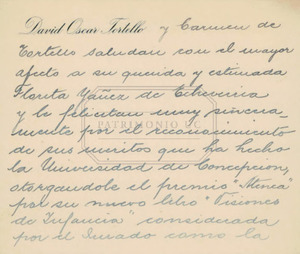 David Oscar Tortello y Carmen de
Tortello saludan con el mayor
afecto a su querida y estimada
Florita Yáñez de Echeverría
y la felicitan muy sincera-
mente por el reconocimiento
de sus méritos que ha hecho
la Universidad de Concepción,
otorgándole el premio "Atenea"
por su nuevo libro "Visiones
de Infancia" considerada
por el Jurado como la
PATRIMONIO UC